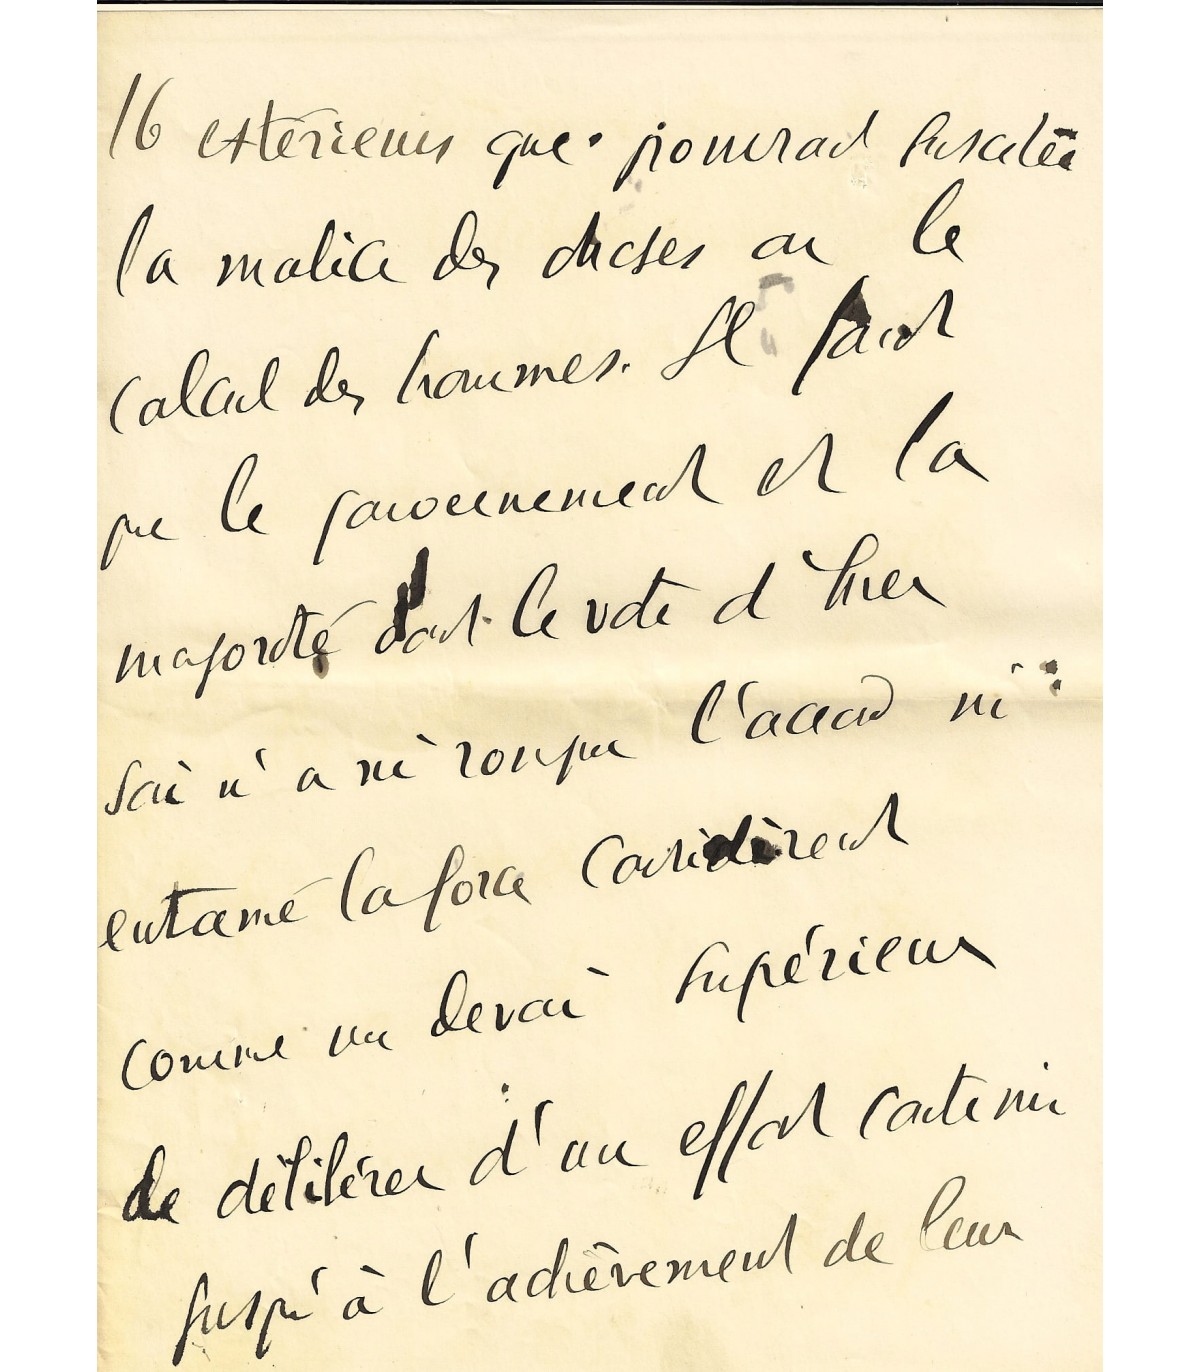 16 extérieurs que pourrait susciter
la malice des choses ou le
calcul des hommes. Il faut
que le gouvernement et la
majorité dont le vote d'hier
soir n'a ni rompu l'accord ni
entamé la force considèrent
comme un devoir supérieur
de délibérer d'un effort continu
jusqu'à l'achèvement de leur